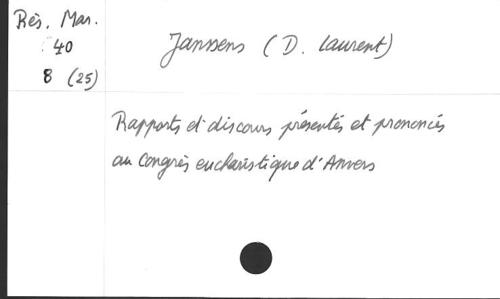 Rès. Mar.
40
8 (25)
Janssens (D. Laurent)
Rapports et discours présentés et prononcés
au Congrès eucharistique d'Anvers